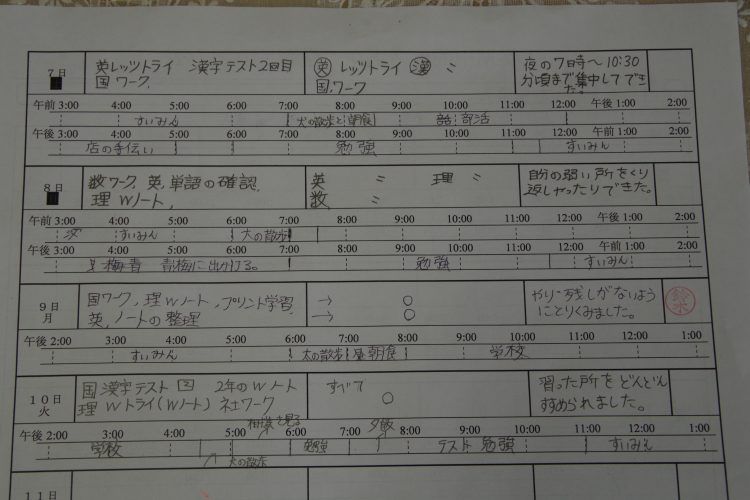 7日
英レッツトライ 漢字テスト2回目
国 ワーク.
英 レッツトライ 漢 〃
国.ワーク
夜の7時〜10:30
分頃まで集中してでき
た。
午前 3:00 4:00 5:00 6:00 7:00 8:00 9:00 10:00 11:00 午後 1:00 2:00
すいみん 犬の散歩と朝食 部活
午後 3:00 4:00 5:00 6:00 7:00 8:00 9:00 10:00 11:00 12:00 午前 1:00 2:00
店の手伝い 勉強 すいみん
8日
数ワーク. 英,単語の確認.
理 Wノート,
英 〃 理 〃
数 〃
自分の弱い所をくり
返しやったりできた。
午前 3:00 4:00 5:00 6:00 7:00 8:00 9:00 10:00 11:00 午後 1:00 2:00
すいみん 犬の散歩
午後 3:00 4:00 5:00 6:00 7:00 8:00 9:00 10:00 11:00 12:00 午前 1:00 2:00
青梅に出かける。 勉強 すいみん
9日
月
国ワーク, 理Wノート, プリント学習,
英, ノートの整理
→ ○
→ ○
やり残しがないよう
にとりくみました。
午後 2:00 3:00 4:00 5:00 6:00 7:00 8:00 9:00 10:00 11:00 12:00 1:00
すいみん 犬の散歩 朝食 学校
10日
火
国 漢字テスト 2年のWノート
理 Wトライ(Wノート) ネエワーク
すべて
○
習った所をどんどん
すすめられました。
午後 2:00 3:00 4:00 5:00 6:00 7:00 8:00 9:00 10:00 11:00 12:00 1:00
相撲を見る 夕飯
学校 勉強 テスト勉強 すいみん
犬の散歩
11日